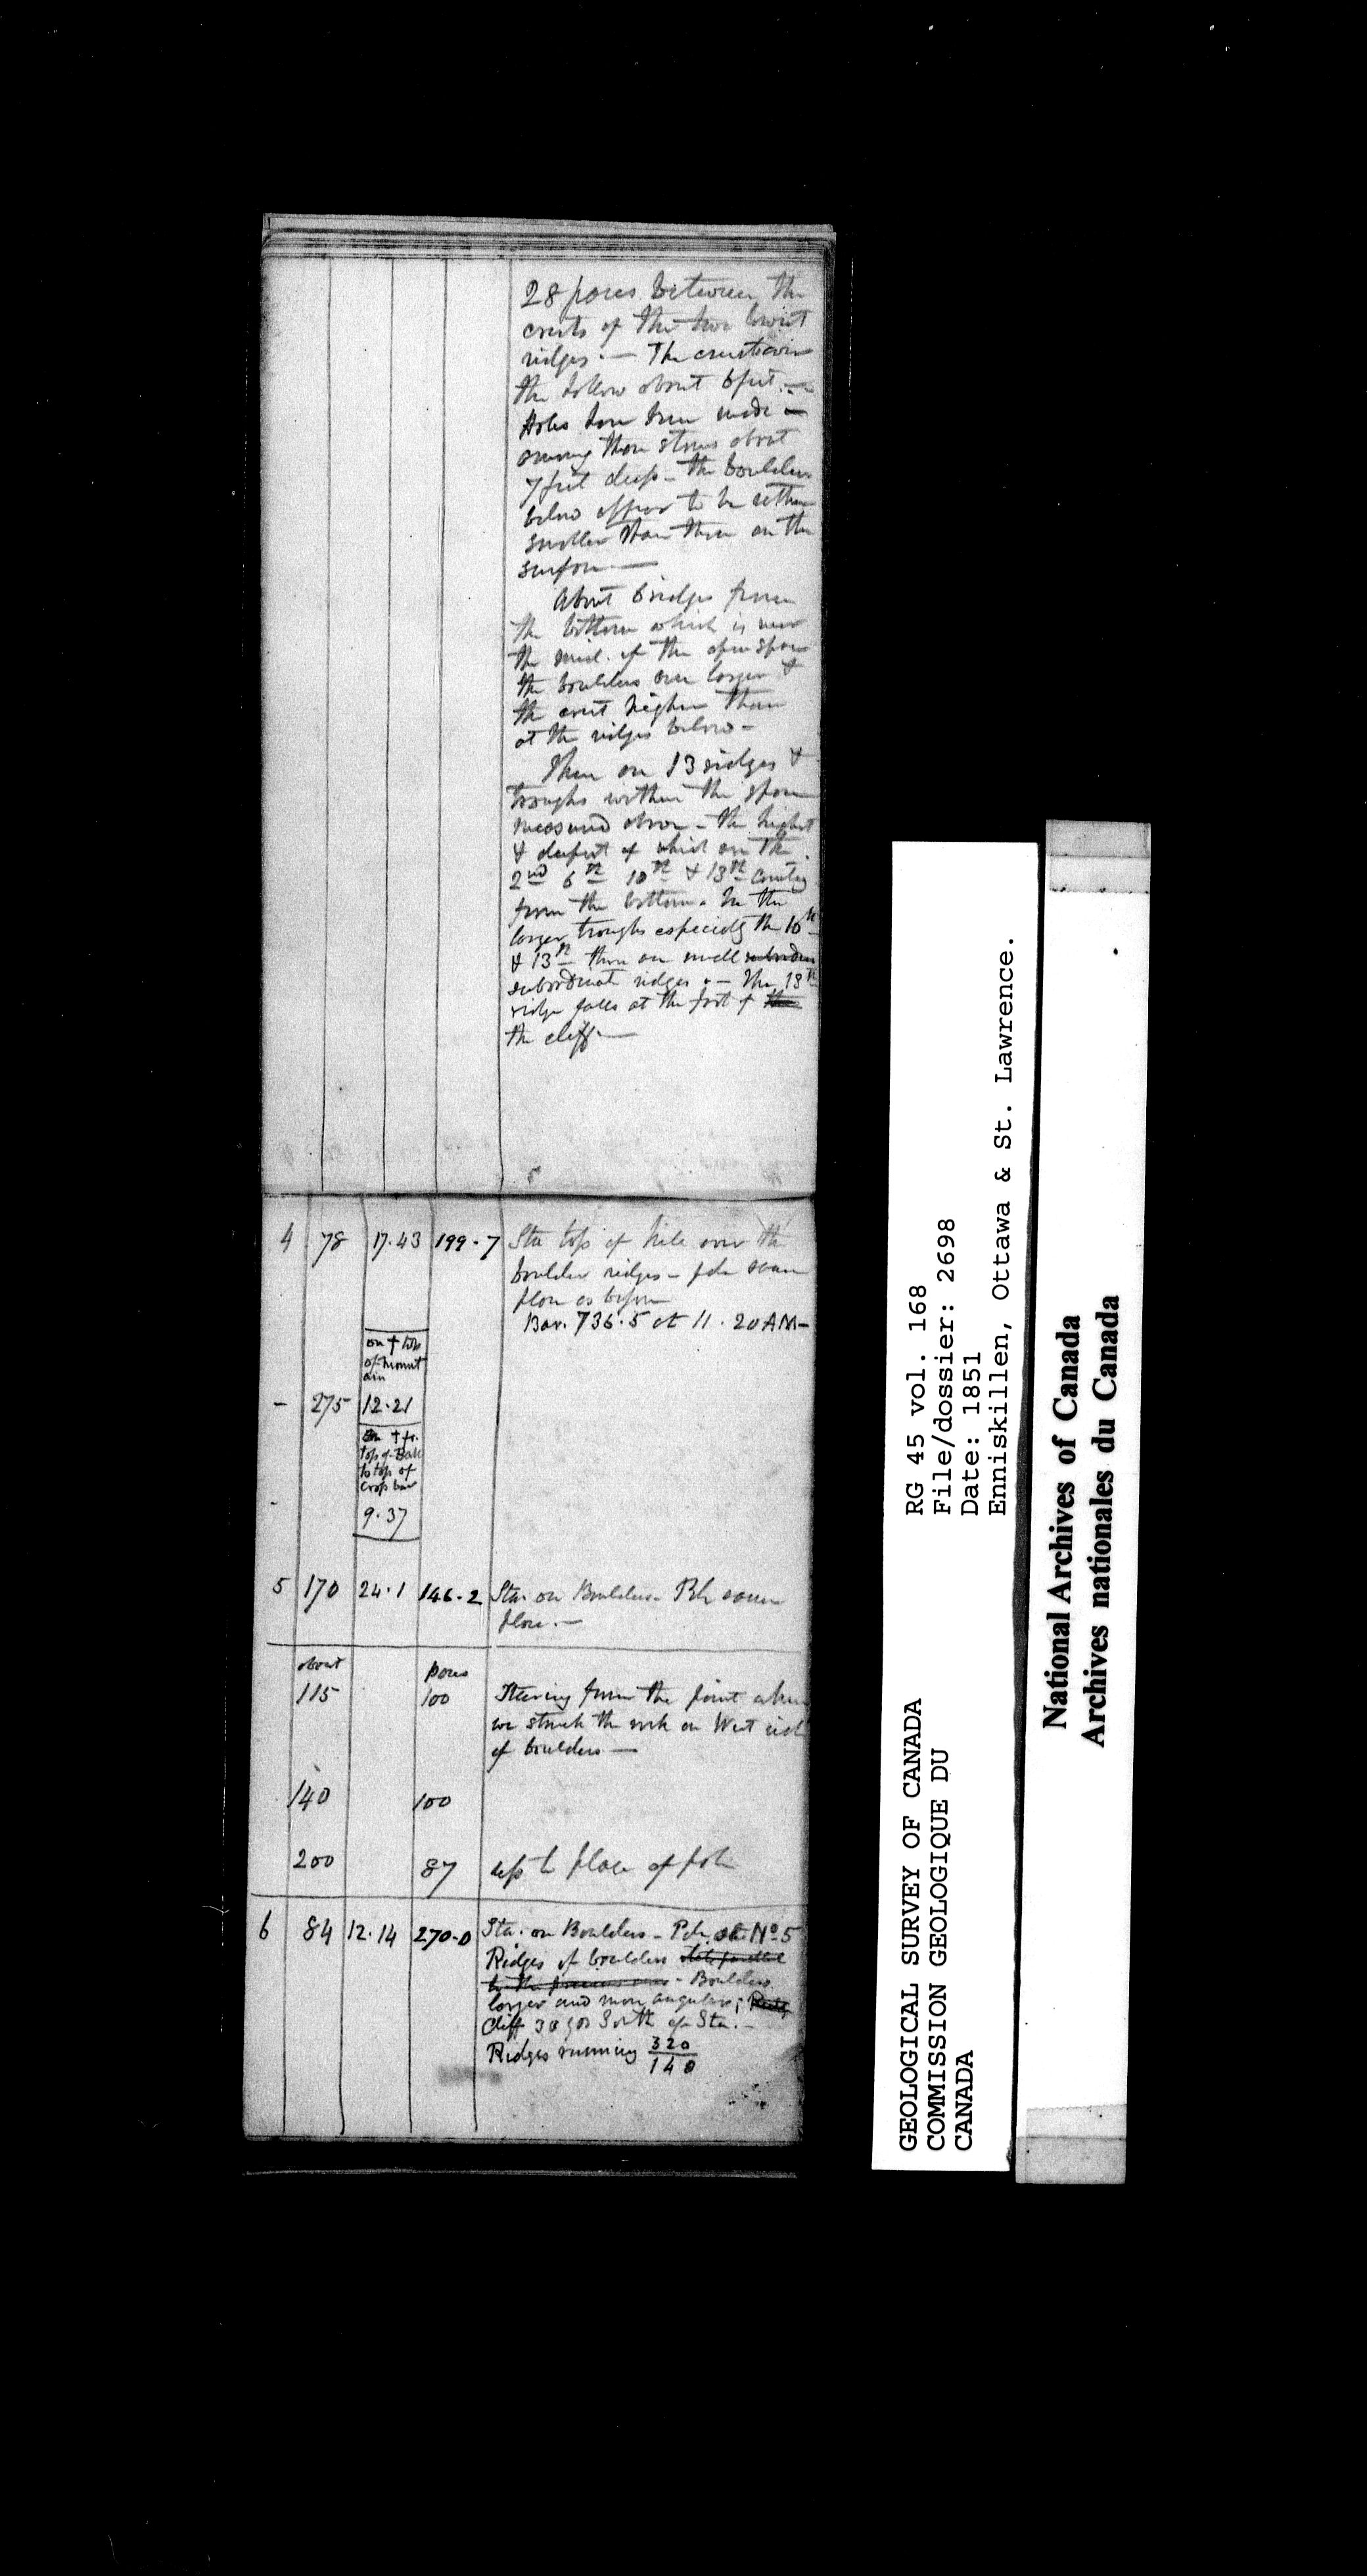 28 paces between the
crests of the two lowest
ridges. — The crests over
the hollow about 6 feet. —
Holes have been made
among these stones about
7 feet deep — the boulders
below appear to be rather
smaller than those on the
surface —
About 6 ridges from
the bottom which is near
the mid. of the open space
the boulders are larger &
the crest higher than
at the ridges below —
There are 13 ridges &
troughs within the space
measured above — the highest
& deepest of which are the
2nd 6th 10th & 13th counting
from the bottom. In the
larger troughs especially the 10th
& 13th there are small
subordinate ridges. — The 13th
ridge falls at the foot of the
the cliff. —
4 78 17.43 199.7 Sta top of hill over the
boulder ridges — pole same
place as before
Bar. 736.5 at 11.20 AM —
on † top
of mount
ain
— 275 12.21
on † fr.
top of Ball
to top of
Cross bar
9.37
5 170 24.1 146.2 Sta. on Boulders — Pole same
place. —
about paces
115 100 Starting from the point where
we struck the rock on West side
of boulders —
140 100
200 87 up to place of pole
6 84 12.14 270.0 Sta. on Boulders — Pole at No 5
Ridges of boulders
— Boulders
larger and more angular;
Cliff 30 yds South of Sta. —
Ridges running 320
140
RG 45 vol. 168
File/dossier: 2698
Date: 1851
Enniskillen, Ottawa & St. Lawrence.
GEOLOGICAL SURVEY OF CANADA
COMMISSION GEOLOGIQUE DU
CANADA
National Archives of Canada
Archives nationales du Canada